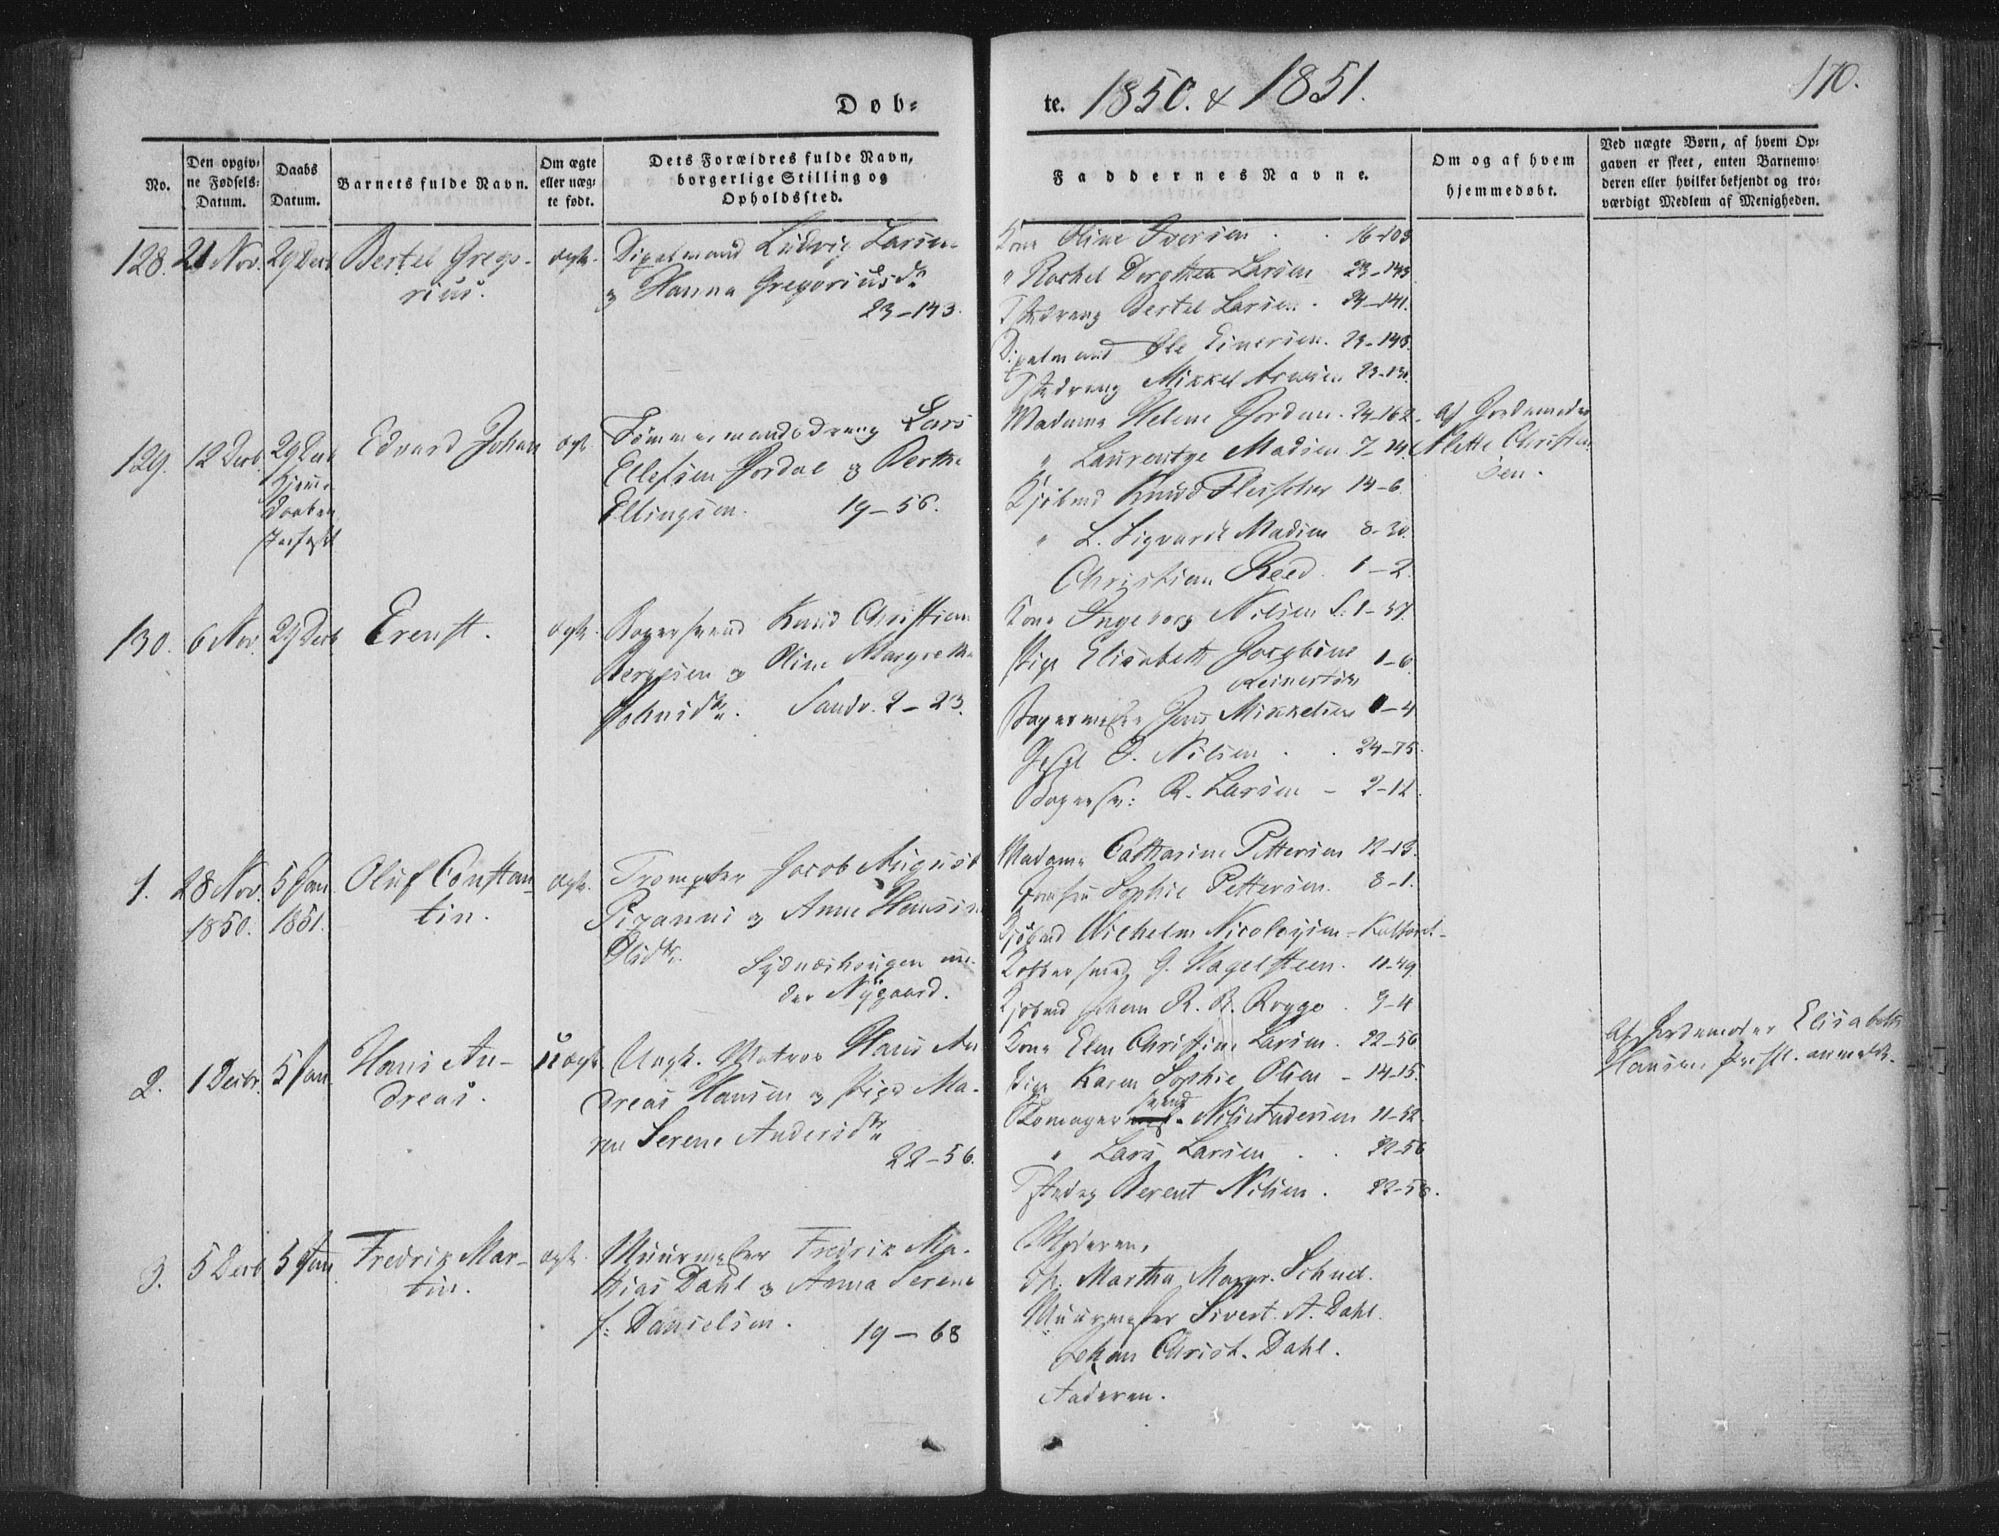 Døb=
te. 1850. & 1851.
170.
No.
Den opgiv=
ne Fødsels=
Datum.
Daabs
Datum.
Barnets fulde Navn.
Om ægte
eller uæg=
te født.
Dets Forældres fulde Navn,
borgerlige Stilling og
Opholdssted.
Faddernes Navne.
Om og af hvem
hjemmedøbt.
Ved uægte Børn, af hvem Op=
gaven er skeet, enten Barnemo=
deren eller hvilket bekjendt og tro=
værdigt Medlem af Menigheden.
128. 21 Nov. 29 Decb Bertel Grego-
rius.
ægte.
Ludvig Larsen
& Hanna Gregoriusdr
23-143.
Kone Oline Iversen 16-103
" Rachel Dorothea Larsen 23-143
Bertel Larsen. 24-141.
Ole Einersen. 23-143.
Mikkel Arnesen
129. 12 Decb. 29 Decb
Edvard Johan ægte
Tømmermandsdreng Lars
Ellefsen Jordal & Berthe
Ellingsen. 19-56.
Madame Helene Jordan. 24-162.
" Laurentze Madsen
Kjøbmd Knud Fleischer 14-6.
" L. Sigvardt Madsen 8-30.
Christian Reed. 1-2.
Af Jordemoder
Mette Christen
sen.
130. 6 Nov. 29 Decb Erenst. ægte.
Bagersvend Knud Christian
Bergesen & Oline Margrethe
Johnsdr. Sandv. 2-23.
Kone Ingeborg Nilsen S. 1-37.
Pige Elisabeth Josephine
Reinertsen 1-6
Bagermester Jens Mikkelsen 1-4
Nilsen 24-75.
Bagersv: R. Larsen - 2-12
1. 28 Nov. 1850. 5 Jan. 1851.
Oluf Constan-
tin.
ægte.
Trompeter Jacob August
Pizanni & Anne Hansine
Olsdr. Sydneshougen un-
der Nygaard.
Madame Catharine Pettersen 12-13.
Jomfru Sophie Pettersen. 8-1.
Kjøbmd Wilhelm Nicolaysen - Kalfaret-
Kobbersmed G. Kagelsteen. 11-49.
Kjøbmd Johan R. R. Brygge. 9-4
2. 1 Decbr. 5 Jan. Hans An-
dreas.
uægte
Ungk. Matros Hans An
dreas Hansen & Pige Ma-
ren Serene Andersdr
22-56.
Kone Elen Christine Larsen. 22-56
Pige Karen Sophie Olsen - 14-15.
Skomagersvend Nils Andersen 11-52.
" Lars Larsen 22-56
Berent Nilsen. 22-58.
Af Jordemoder Elisabeth
Hansen
3. 5 Decb 5 Jan. Fredrik Mar-
tin.
ægte.
Muurmester Fredrik Ma-
thias Dahl & Anna Serene
f: Danielsen. 19-68
Moderen.
Martha Margr. Schnel.
Muurmester Sivert A. Dahl.
Johan Christ. Dahl.
Faderen.